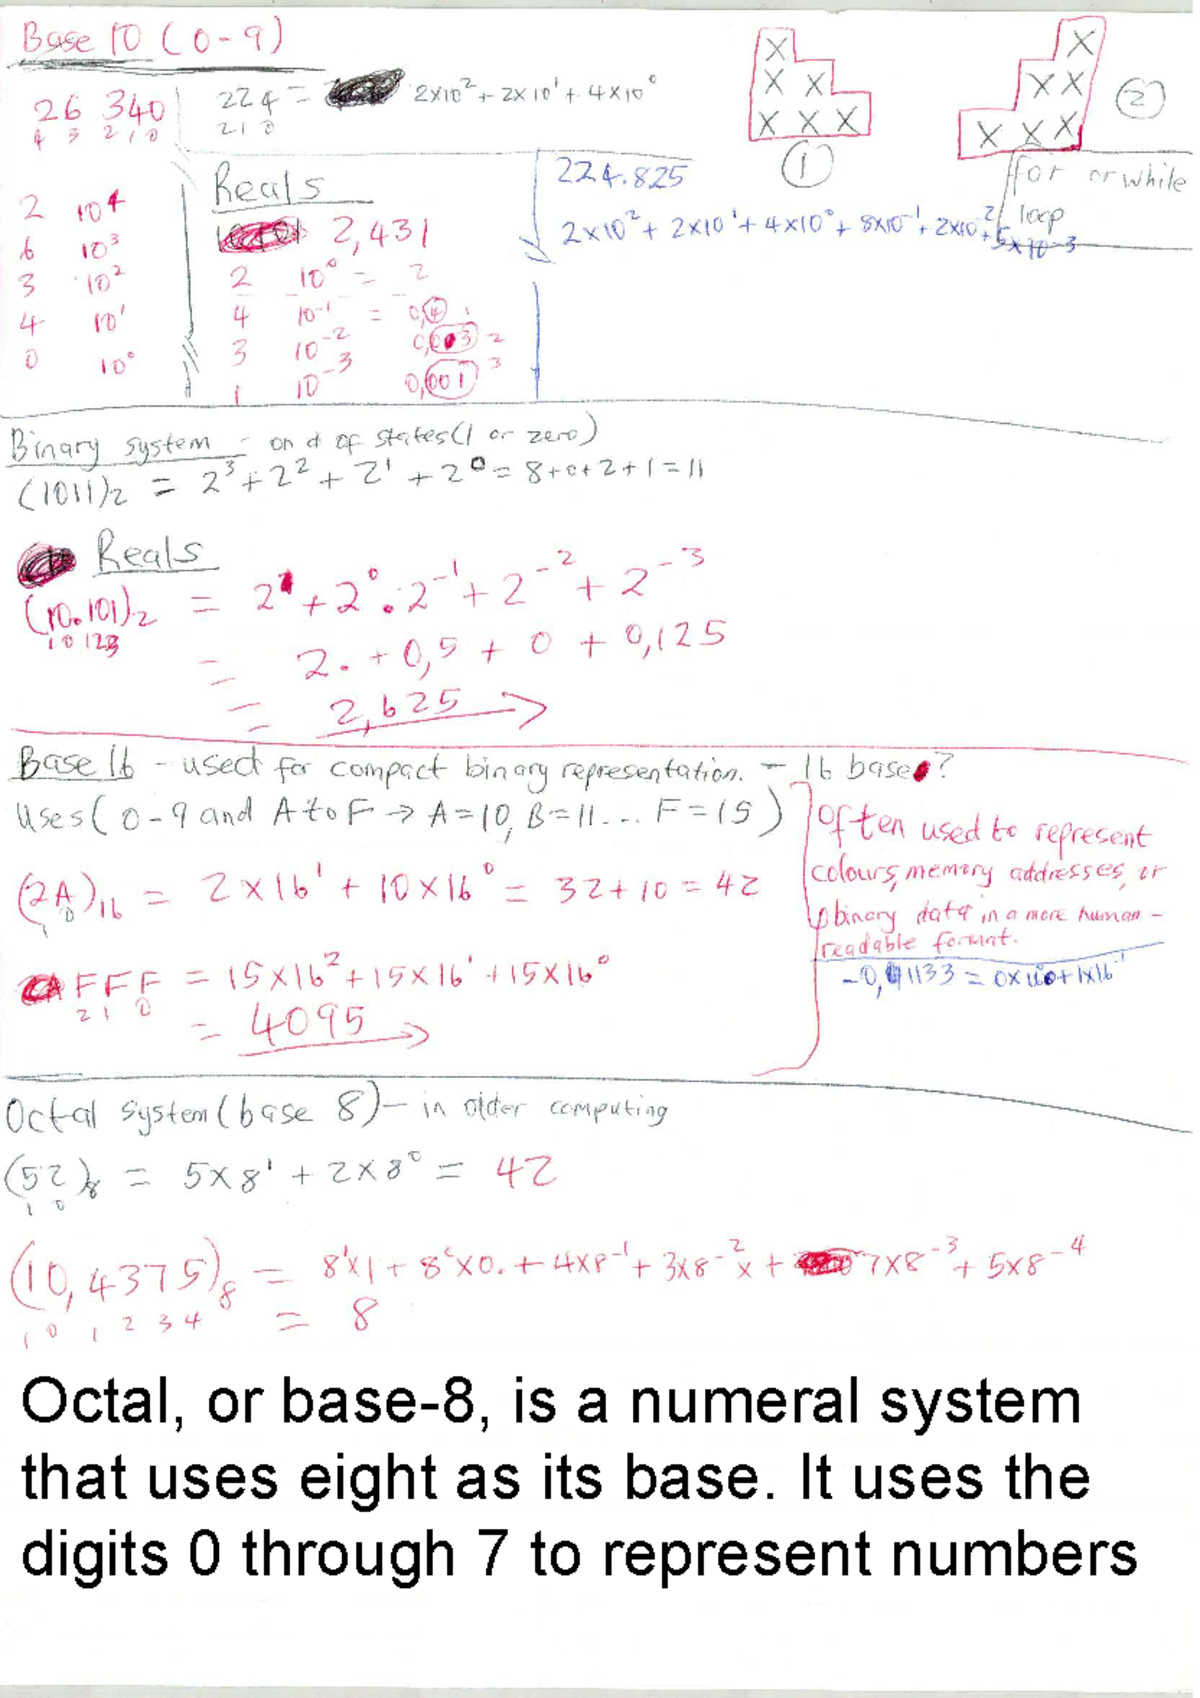 Base 10 (0-9)
26 340
4 3 2 1 0
224 = 2x10² + 2x10¹ + 4x10⁰
2 1 0
X
X X
X X X
①
X
X X
X X X
②
for or while
loop
2 10⁴
6 10³
3 10²
4 10¹
0 10⁰
Reals
2,431
2 10⁰ = 2
4 10⁻¹ = 0,4 1
3 10⁻² 0,003 2
1 10⁻³ 0,001 3
224.825
2x10² + 2x10¹ + 4x10⁰ + 8x10⁻¹ + 2x10⁻² + 5x10⁻³
Binary system - on d of states (1 or zero)
(1011)₂ = 2³ + 2² + 2¹ + 2⁰ = 8+0+2+1 = 11
Reals
(10.101)₂ = 2¹ + 2⁰ . 2⁻¹ + 2⁻² + 2⁻³
1 0 1 2 3
= 2. + 0,5 + 0 + 0,125
= 2,625
Base 16 - used for compact binary representation. - 16 base?
Uses (0-9 and A to F → A=10, B=11... F=15)
(2A)₁₆ = 2x16¹ + 10x16⁰ = 32+10 = 42
1 0
FFF = 15x16² + 15x16¹ + 15x16⁰
2 1 0
= 4095
Often used to represent
colours, memory addresses, or
binary data in a more human-
readable format.
Octal system (base 8) - in older computing
(52)₈ = 5x8¹ + 2x8⁰ = 42
1 0
(10,4375)₈ = 8¹x1 + 8⁰x0. + 4x8⁻¹ + 3x8⁻²x + 7x8⁻³ + 5x8⁻⁴
1 0 1 2 3 4
= 8
Octal, or base-8, is a numeral system
that uses eight as its base. It uses the
digits 0 through 7 to represent numbers